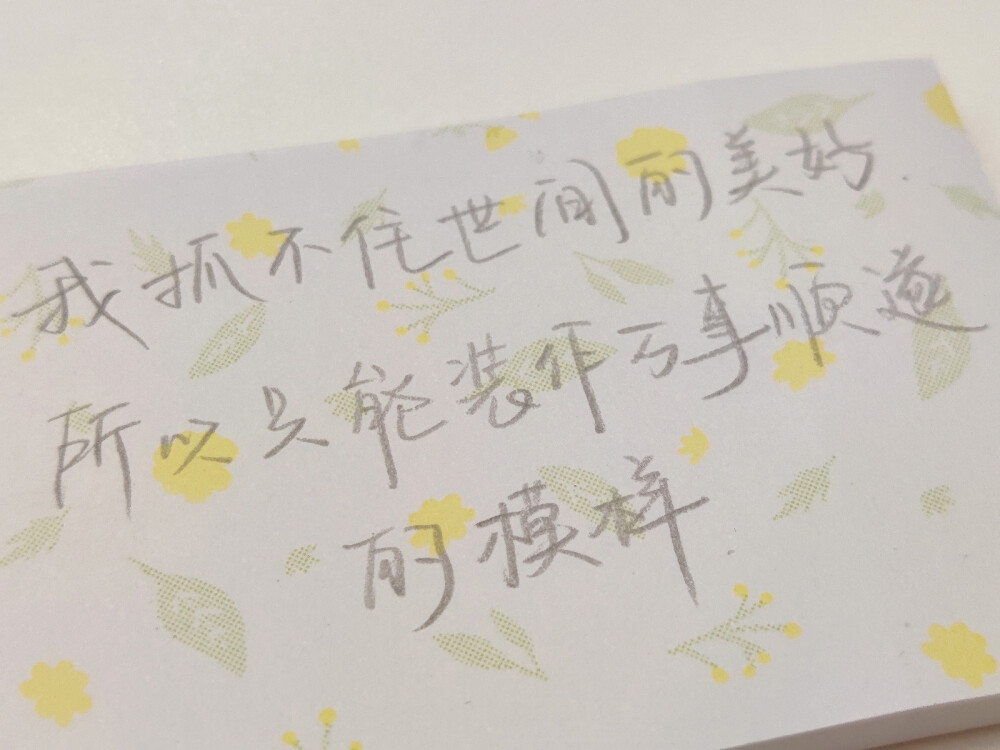 我抓不住世间的美好
所以只能装作万事顺遂
的模样